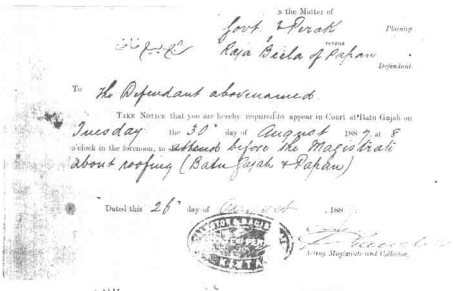 In the Matter of
Govt. of Perak
Plaintiff
versus
Raja Biela of Papan
Defendant.
To The Defendant abovenamed.
TAKE NOTICE that you are hereby required to appear in Court at Batu Gajah on
Tuesday the 30th day of August 1887, at 8
o'clock in the forenoon, to attend before the Magistrate
about roofing (Batu Gajah & Papan)
Dated this 26th day of August, 188
Acting Magistrate and Collector.